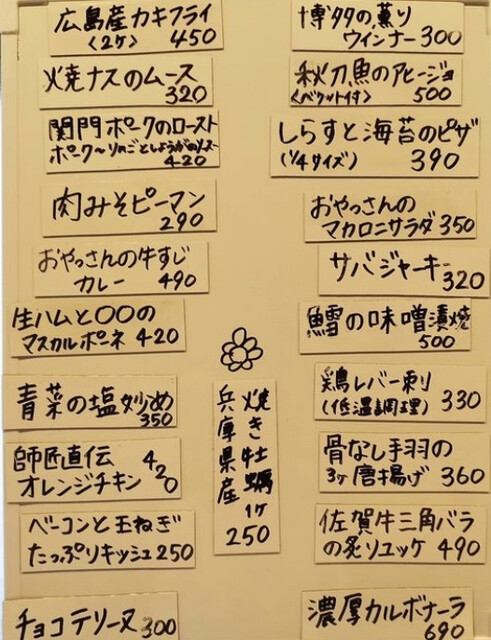 広島産カキフライ
〈2ケ〉 450
焼ナスのムース
320
関門ポークのロースト
420
肉みそピーマン
290
おやっさんの牛すじ
カレー 490
生ハムと〇〇の
マスカルポーネ 420
青菜の塩炒め
350
師匠直伝
オレンジチキン 420
ベーコンと玉ねぎ
たっぷりキッシュ 250
チョコテリーヌ 300
焼き牡蠣1ケ
兵庫県産 250
博多の薫り
ウインナー 300
秋刀魚のアヒージョ
〈バケット付〉 500
しらすと海苔のピザ
(1/4サイズ) 390
おやっさんの
マカロニサラダ 350
サバジャーキー
320
鱈の味噌漬焼
500
鶏レバー刺
(低温調理) 330
骨なし手羽の
3ヶ唐揚げ 360
佐賀牛三角バラ
の炙りユッケ 490
濃厚カルボナーラ
690